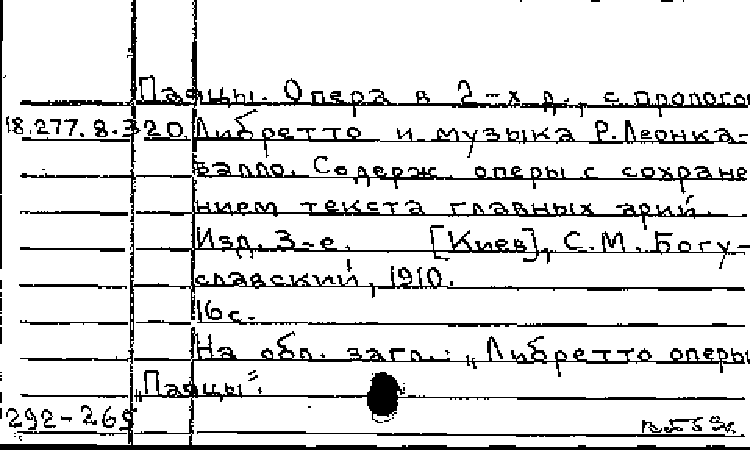 Паяцы. Опера в 2-х д., с прологом
18.277.8.320. Либретто и музыка Р. Леонка-
валло. Содерж. оперы с сохране
нием текста главных арий.
Изд. 3-е. [Киев], С. М. Богу-
славский, 1910.
16 с.
На обл. загл.: „Либретто оперы
„Паяцы".
292-269